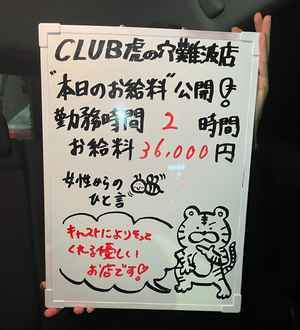 CLUB虎の穴難波店
"本日のお給料"公開!
勤務時間 2 時間
お給料 36,000円
女性からの
ひと言
キャストによりそって
くれる優しい
お店です♡